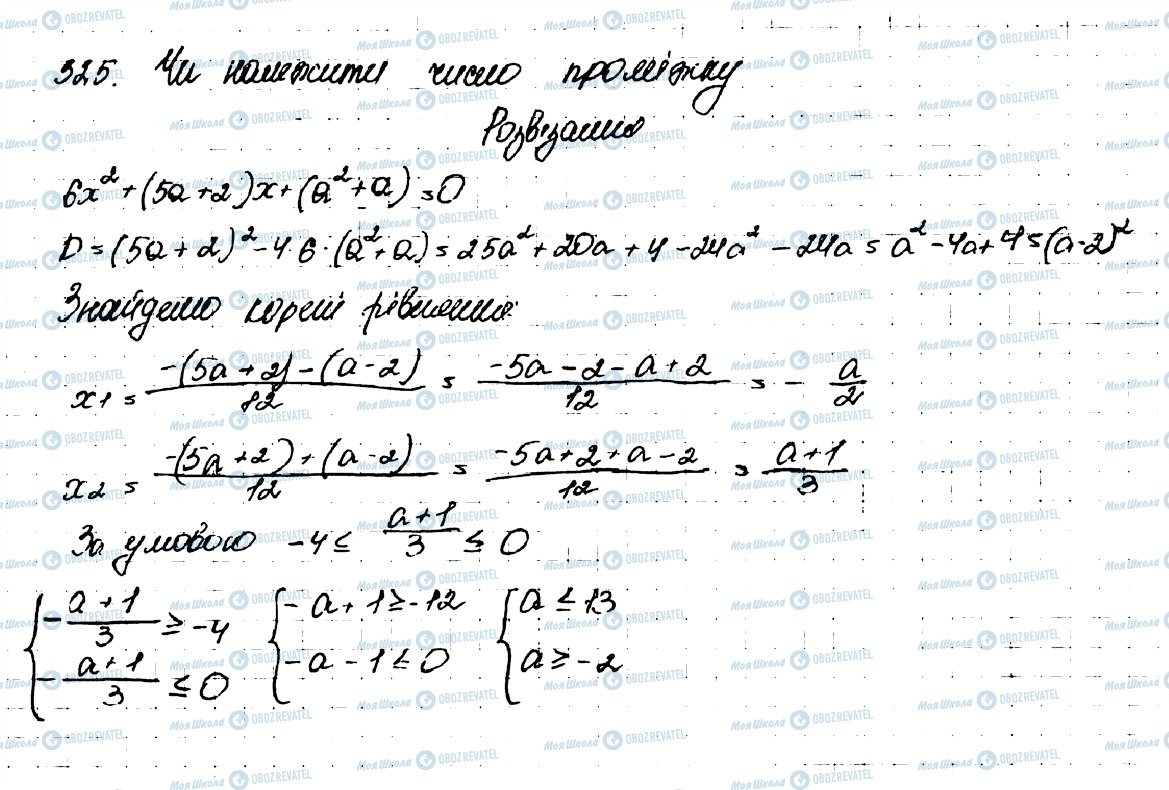 325. Чи належити число проміжку
Розв'язання
6x² + (5a + 2)x + (a² + a) = 0
D = (5a + 2)² - 4·6·(a² + a) = 25a² + 20a + 4 - 24a² - 24a = a² - 4a + 4 = (a - 2)²
Знайдемо корені рівняння:
x1 = (-(5a + 2) - (a - 2))/12 = (-5a - 2 - a + 2)/12 = - a/2
x2 = (-(5a + 2) + (a - 2))/12 = (-5a + 2 + a - 2)/12 = (a + 1)/3
За умовою -4 ≤ (a + 1)/3 ≤ 0
{ -(a + 1)/3 ≥ -4 { -a + 1 ≥ -12 { a ≤ 13
{ -(a + 1)/3 ≤ 0 { -a - 1 ≤ 0 { a ≥ -2
Моя Школа OBOZREVATEL